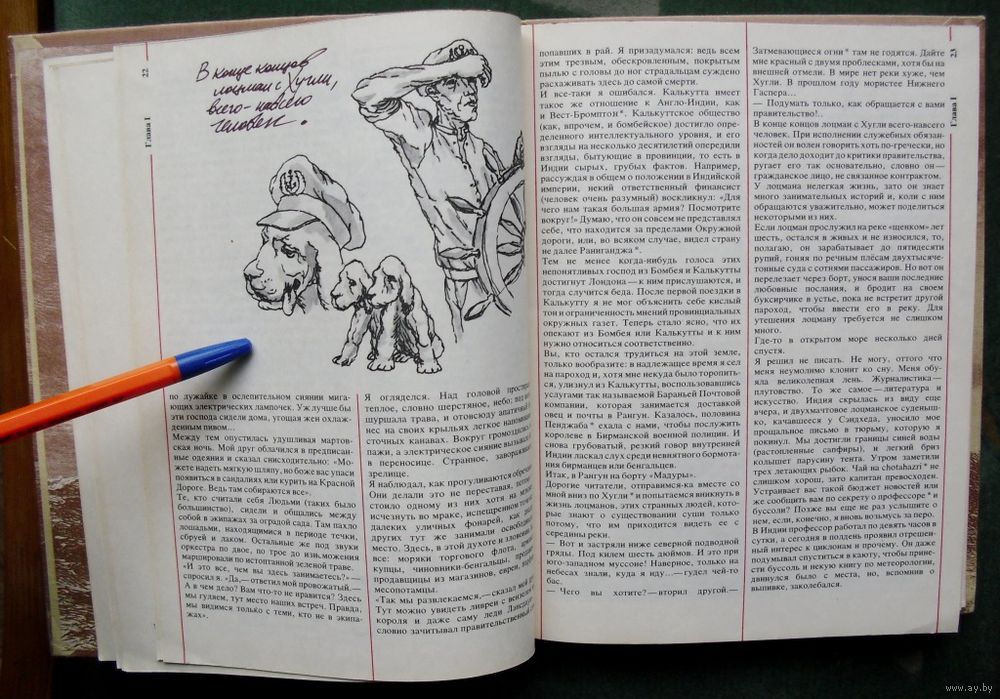 22
Глава I
В конце концов
лоцман с Хугли,
всего-навсего
человек.
по лужайке в ослепительном сиянии мига-
ющих электрических лампочек. Уж лучше бы
эти господа сидели дома, угощая жен охлаж-
денным пивом...
Между тем опустилась удушливая мартов-
ская ночь. Мой друг облачился в предписан-
ные одеяния и сказал снисходительно: «Мо-
жете надеть мягкую шляпу, но боже вас упаси
появиться в сандалиях или курить на Красной
Дороге. Ведь там собираются все».
Те, кто считали себя Людьми (таких было
большинство), сидели и общались между
собой в экипажах за оградой сада. Там пахло
лошадьми, находящимися в периоде течки,
сбруей и лаком. Остальные же под звуки
оркестра по двое, по трое до изнеможения
маршировали по истоптанной зеленой траве.
«И это все, чем вы здесь занимаетесь?» —
спросил я. «Да,— ответил мой провожатый.—
А в чем дело? Вам что-то не нравится? Здесь
мы гуляем, тут место наших встреч. Правда,
мы видимся только с теми, кто не в экипа-
жах».
Я огляделся. Над головой простира
теплое, словно шерстяное, небо; под но
шуршала трава, и отовсюду апатичный
нес на своих крыльях легкое напомин
сточных канавах. Вокруг громоздились
пажи, а электрическое сияние вызывал
в переносице. Странное, заворажи
зрелище.
Я наблюдал, как прогуливаются обречен
Они делали это не переставая, пото
стоило одному из них хотя на мгно
исчезнуть во мраке, испещренном
далеких уличных фонарей, как
других тут же занимали освободив
место. Здесь, в этой духоте и зловонии
все: моряки торгового флота, армян
купцы, чиновники-бенгальцы, продав
продавщицы из магазинов, евреи, парсы
месопотамцы.
«Так мы развлекаемся,— сказал мой
Тут можно увидеть ливреи с вензелем
короля и даже саму леди Лансдаун
словно зачитывал правительственный
попавших в рай. Я призадумался: ведь всем
этим трезвым, обескровленным, покрытым
пылью с головы до ног страдальцам суждено
расхаживать здесь до самой смерти.
И все-таки я ошибался. Калькутта имеет
такое же отношение к Англо-Индии, как
и Вест-Бромптон*. Калькуттское общество
(как, впрочем, и бомбейское) достигло опре-
деленного интеллектуального уровня, и его
взгляды на несколько десятилетий опередили
взгляды, бытующие в провинции, то есть в
Индии сырых, грубых фактов. Например,
рассуждая в общем о положении в Индийской
империи, некий ответственный финансист
(человек очень разумный) воскликнул: «Для
чего нам такая большая армия? Посмотрите
вокруг!» Думаю, что он совсем не представлял
себе, что находится за пределами Окружной
дороги, или, во всяком случае, видел страну
не далее Ранигaнджа*.
Тем не менее когда-нибудь голоса этих
непонятливых господ из Бомбея и Калькутты
достигнут Лондона — к ним прислушаются, и
тогда случится беда. После первой поездки в
Калькутту я не мог объяснить себе кислый
тон и ограниченность мнений провинциальных
окружных газет. Теперь стало ясно, что их
опекают из Бомбея или Калькутты и к ним
нужно относиться соответственно.
Вы, кто остался трудиться на этой земле,
только вообразите: в надлежащее время я сел
на пароход и, хотя мне некуда было торопить-
ся, улизнул из Калькутты, воспользовавшись
услугами так называемой Бараньей Почтовой
компании, которая занимается доставкой
овец и почты в Рангун. Казалось, половина
Пенджаба* ехала с нами, чтобы послужить
королеве в Бирманской военной полиции. И
снова грубоватый, резкий говор внутренней
Индии ласкал слух среди невнятного бормота-
ния бирманцев или бенгальцев.
Итак, в Рангун на борту «Мадуры».
Дорогие читатели, отправимся-ка вместе со
мной вниз по Хугли* и попытаемся вникнуть в
жизнь лоцманов, этих странных людей, кото-
рые знают о существовании суши только
потому, что им приходится видеть ее с
середины реки.
— Вот и застряли ниже северной подводной
гряды. Под килем шесть дюймов. И это при
юго-западном муссоне! Наверное, только на
небесах знали, куда я иду...— гудел чей-то
бас.
— Чего вы хотите? — вторил другой.—
Затмевающиеся огни* там не годятся. Дайте
мне красный с двумя проблесками, хотя бы на
внешней отмели. В мире нет реки хуже, чем
Хугли. В прошлом году мористее Нижнего
Гаспера...
— Подумать только, как обращается с вами
правительство!..
В конце концов лоцман с Хугли всего-навсего
человек. При исполнении служебных обязан-
ностей он волен говорить хоть по-гречески, но
когда дело доходит до критики правительства,
ругает его так основательно, словно он —
гражданское лицо, не связанное контрактом.
У лоцмана нелегкая жизнь, зато он знает
много занимательных историй и, коли с ним
обращаются уважительно, может поделиться
некоторыми из них.
Если лоцман прослужил на реке «щенком» лет
шесть, остался в живых и не износился, то,
полагаю, он зарабатывает до пятидесяти
рупий, гоняя по речным плёсам двухтысяче-
тонные суда с сотнями пассажиров. Но вот он
перелезает через борт, унося ваши последние
любовные послания, и бродит на своем
буксирчике в устье, пока не встретит другой
пароход, чтобы ввести его в реку. Для
утешения лоцману требуется не слишком
много.
Где-то в открытом море несколько дней
спустя.
Я решил не писать. Не могу, оттого что
меня неумолимо клонит ко сну. Меня обу-
яла великолепная лень. Журналистика —
плутовство. То же самое — литература и
искусство. Индия скрылась из виду еще
вчера, и двухмачтовое лоцманское суденыш-
ко, качавшееся у Сэндхеда, уносило мое
прощальное письмо в тюрьму, которую я
покинул. Мы достигли границы синей воды
(растопленные сапфиры), и легкий бриз
колышет парусину тента. Утром заметили
трех летающих рыбок. Чай на chotahazri* не
слишком хорош, зато капитан превосходен.
Устраивает вас такой бюджет новостей или
же сообщить вам по секрету о профессоре* и
буссоли? Позже вы еще не раз услышите о
нем, если, конечно, я вновь возьмусь за перо.
В Индии профессор работал по девять часов в
сутки, а сегодня в полдень проявил отрешен-
ный интерес к циклонам и прочему. Он даже
подумывал спуститься в каюту, чтобы прине-
сти буссоль и некую книгу по метеорологии,
двинулся было с места, но, вспомнив о
выпивке, заколебался.
23
Глава I
www.ay.by